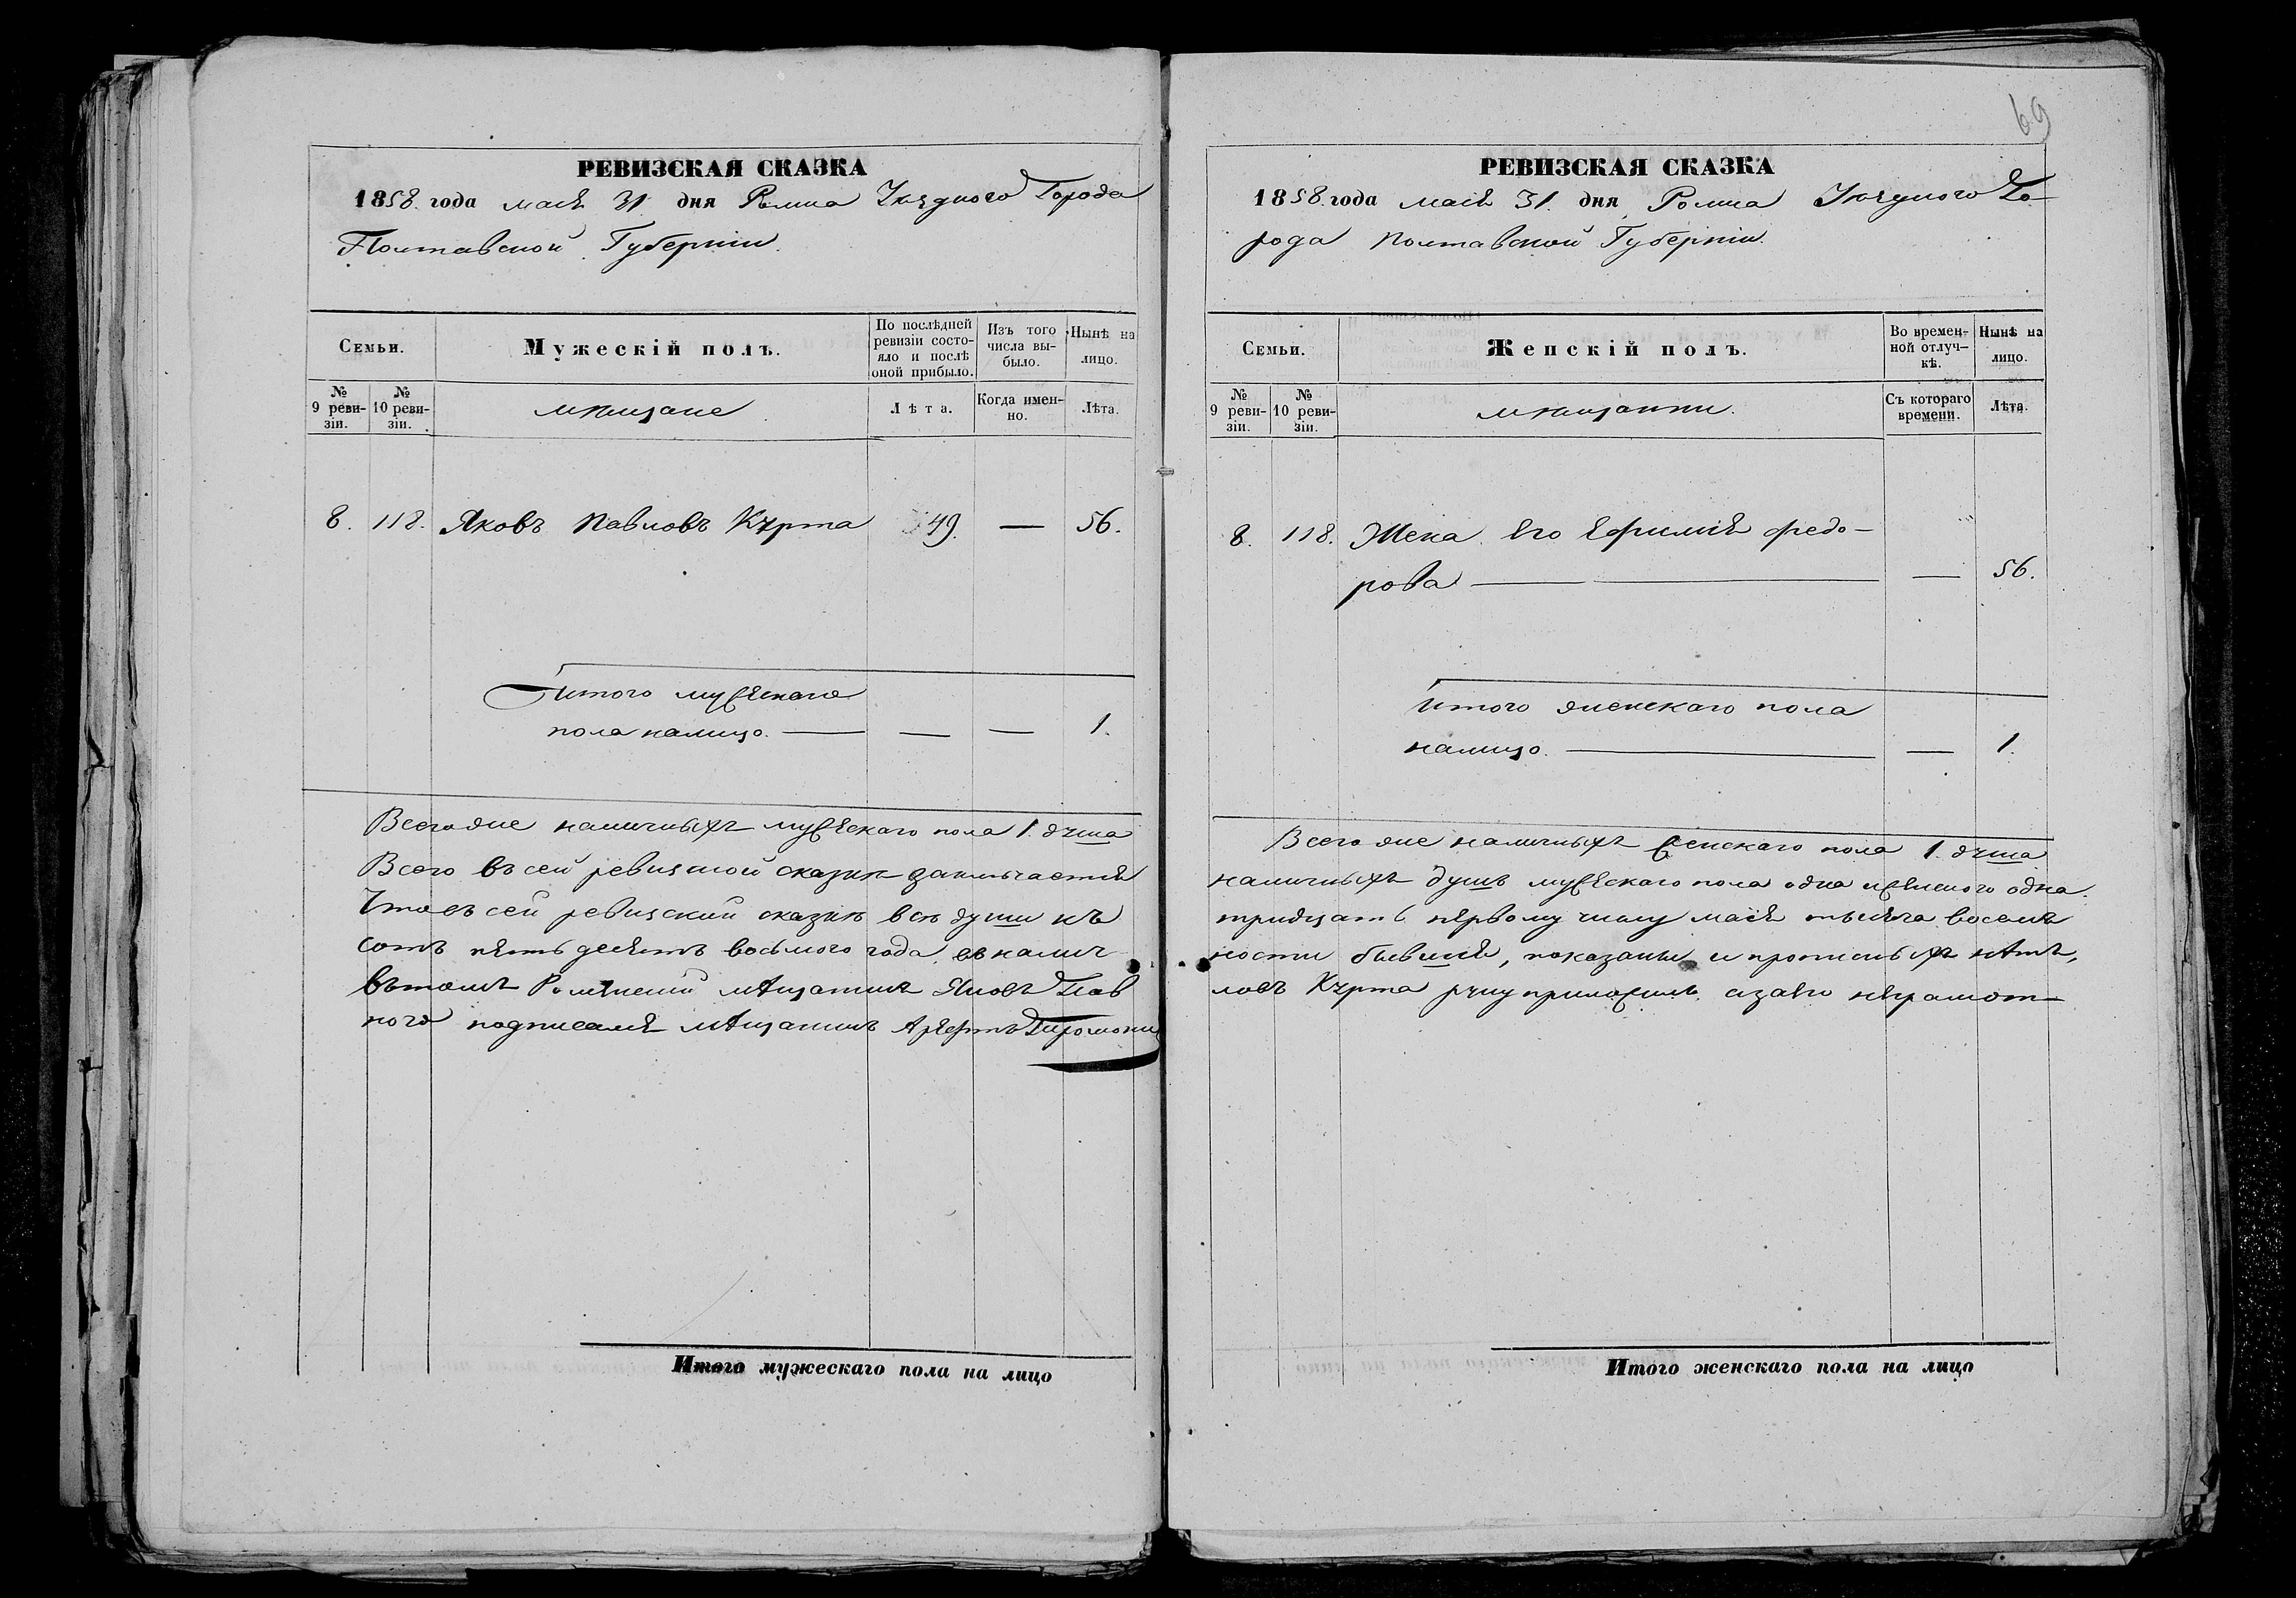 РЕВИЗСКАЯ СКАЗКА
1858. года маія 31. дня Ромна Уѣзднаго Города
Полтавской Губерніи.
Семьи.
Мужескій полъ.
По послѣдней ревизіи состояло и послѣ оной прибыло.
Изъ того числа выбыло.
Нынѣ на лицо.
№ 9 ревизіи.
№ 10 ревизіи.
мѣщане
Лѣта.
Когда именно.
Лѣта.
8. 118. Яковъ Павловъ Курта 49. — 56.
Итого мужескаго
пола налицо. — — — 1.
Всего же наличныхъ мужескаго пола 1. душа
Всего въ сей ревизской сказкѣ заключается
Что въ сей ревизской сказкѣ всѣ души къ
сотъ пятьдесятъ восьмого года, въ налич
въ томъ Роменский мѣщанинъ Яковъ Пав
ного подписался мѣщанинъ
Итого мужескаго пола на лицо
69
РЕВИЗСКАЯ СКАЗКА
1858. года маія 31. дня Ромна Уѣзднаго Го-
рода Полтавской Губерніи.
Семьи.
Женскій полъ.
Во временной отлучкѣ.
Нынѣ на лицо.
№ 9 ревизіи.
№ 10 ревизіи.
мѣщанки.
Съ котораго времени.
Лѣта.
8. 118. Жена его Ефимія Федо-
рова — — 56.
Итого женскаго пола
налицо. — — 1.
Всего же наличныхъ женскаго пола 1. душа
наличныхъ душъ мужескаго пола одна женского одна.
тридцать первому числу маія тысяча восемь
ности бывшія, показаны и прописныхъ нѣтъ,
ловъ Курта руку приложилъ, а за его неграмот-
Итого женскаго пола на лицо